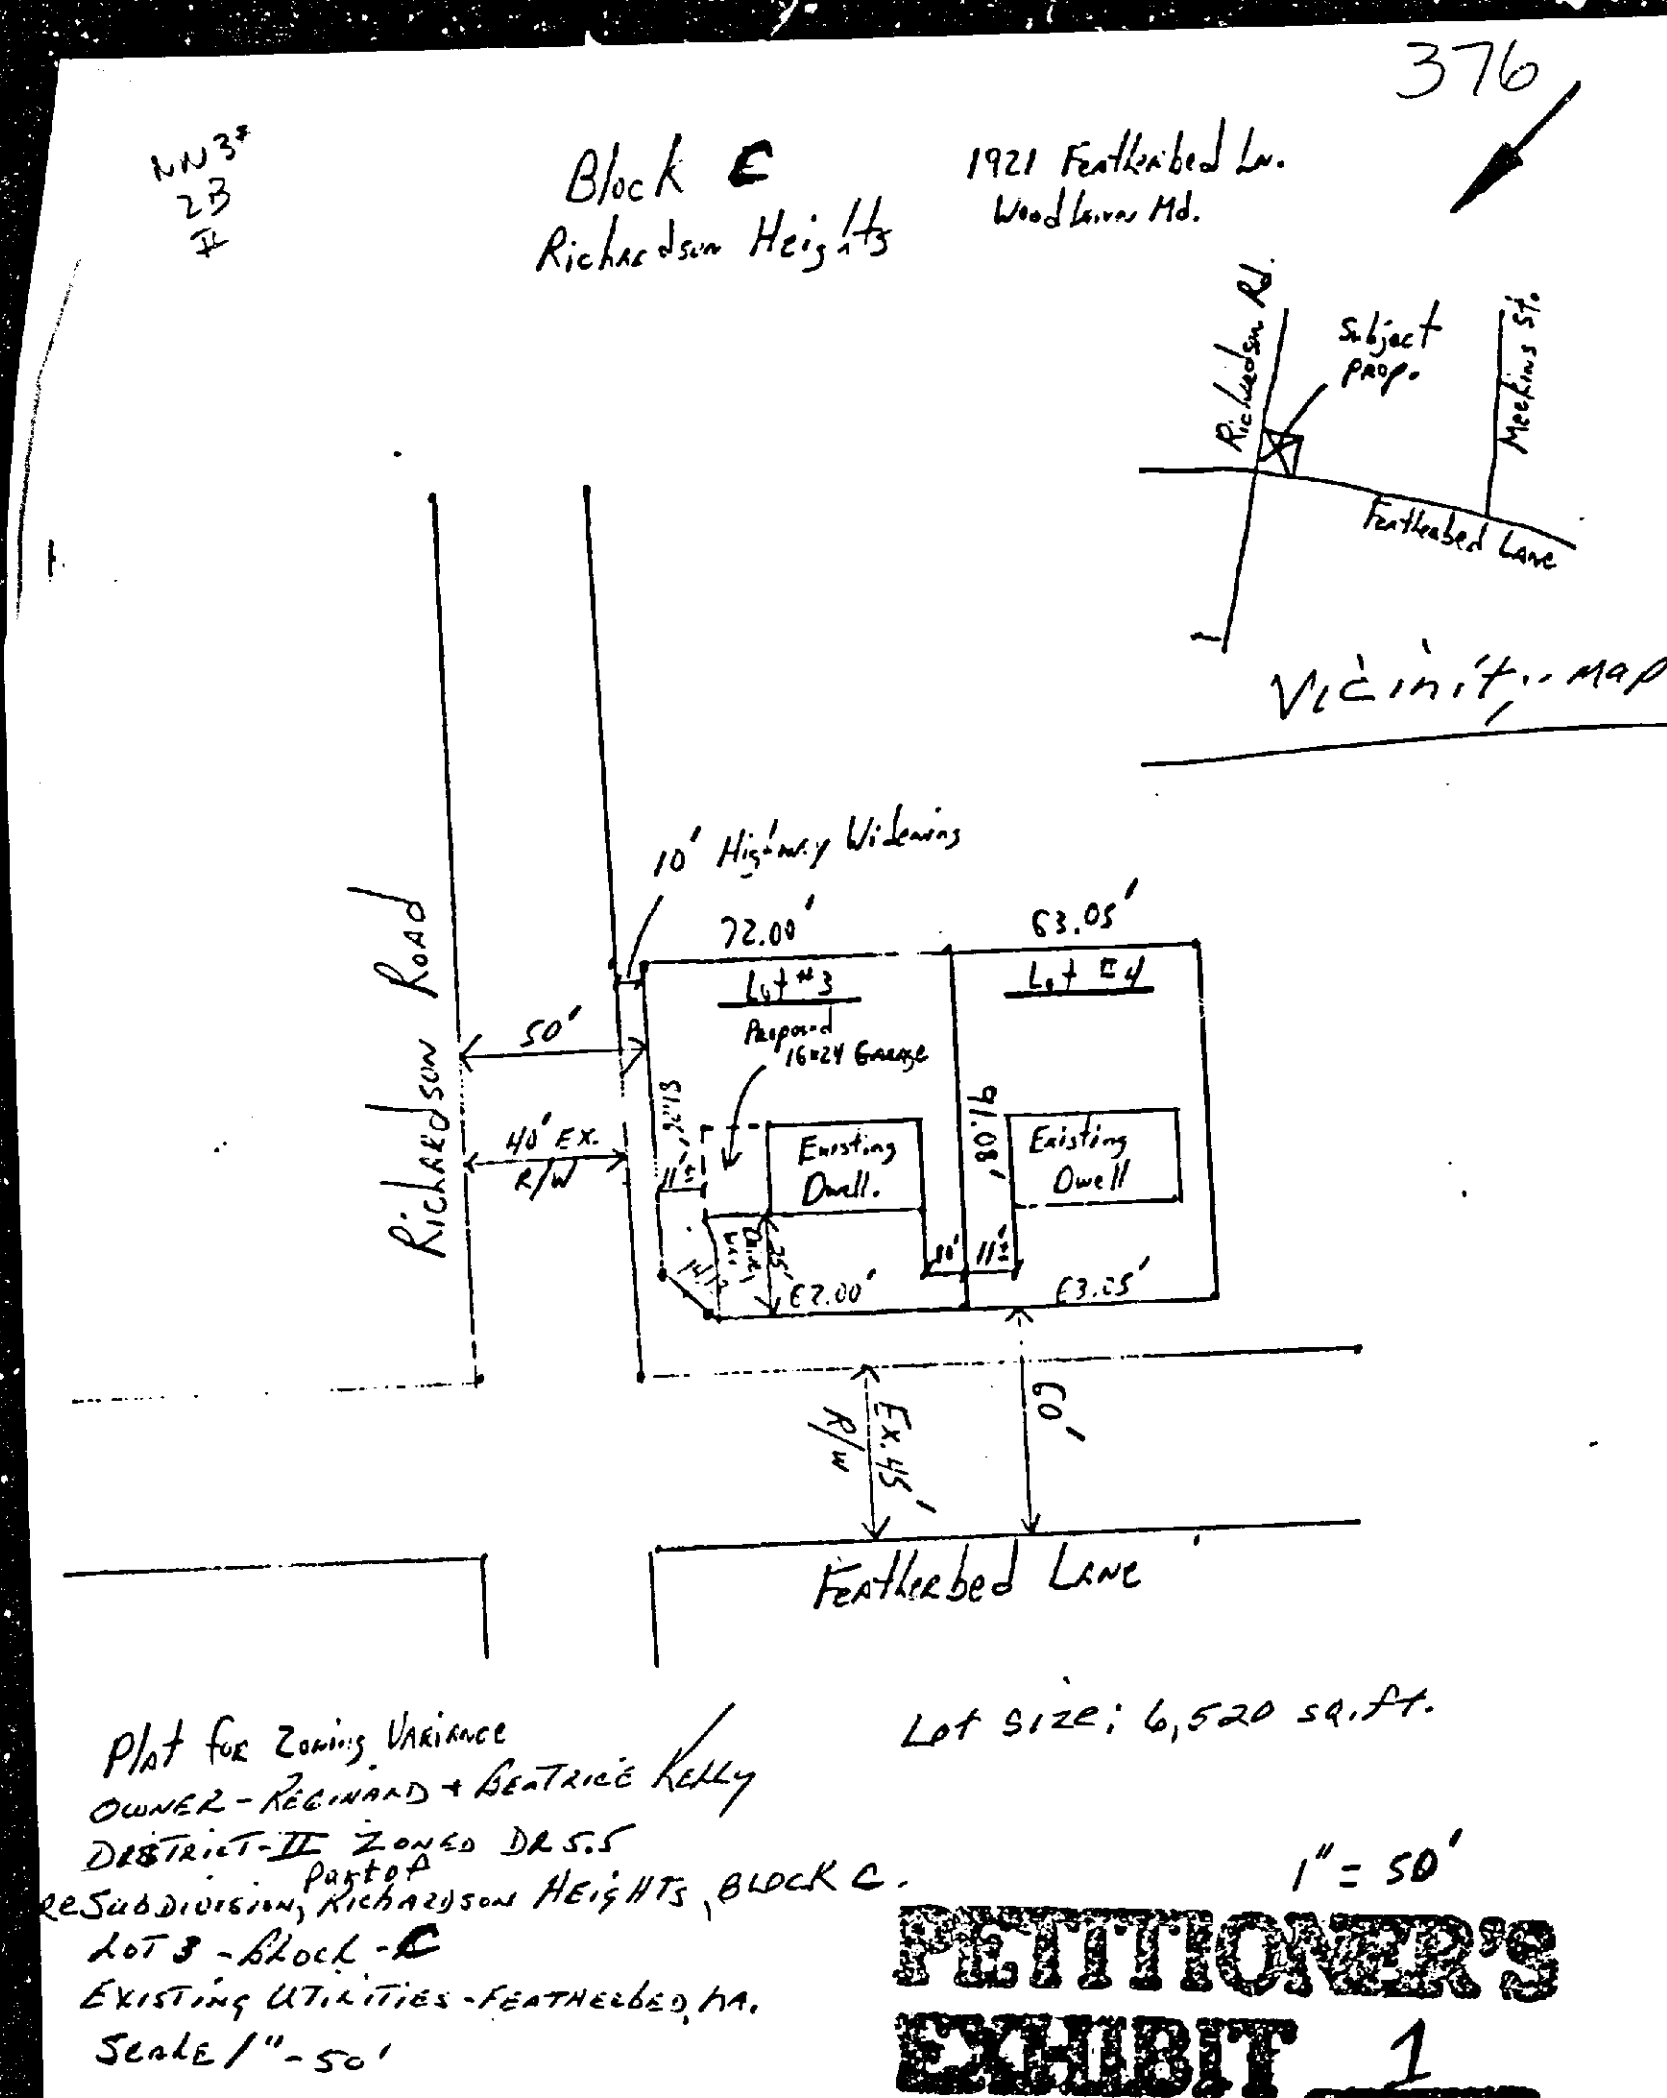 376
NW 3F
2B
II
Block C
Richardson Heights
1921 Featherbed Ln.
Woodlawn Md.
Richardson Rd.
Subject
Prop.
Meekins St.
Featherbed Lane
Vicinity Map
10' Highway Widening
72.00'
63.05'
Lot #3
Lot #4
Proposed
16x24 Garage
Richardson Road
50'
40' EX.
R/W
11'±
91.08'
Existing
Dwell.
Existing
Dwell
25'
10'
11'±
62.00'
60'
Ex. 45'
R/W
Featherbed Lane
Plat for Zoning Variance
Lot size: 6,520 sq. ft.
OWNER - REGINARD + BEATRICE KELLY
DISTRICT-II ZONED DR 5.5
Part of
ReSubdivision, RICHARDSON HEIGHTS, BLOCK C.
LOT 3 - BLOCK - C
EXISTING UTILITIES - FEATHERBED, LA.
SCALE 1" - 50'
1" = 50'
PETITIONER'S
EXHIBIT 1